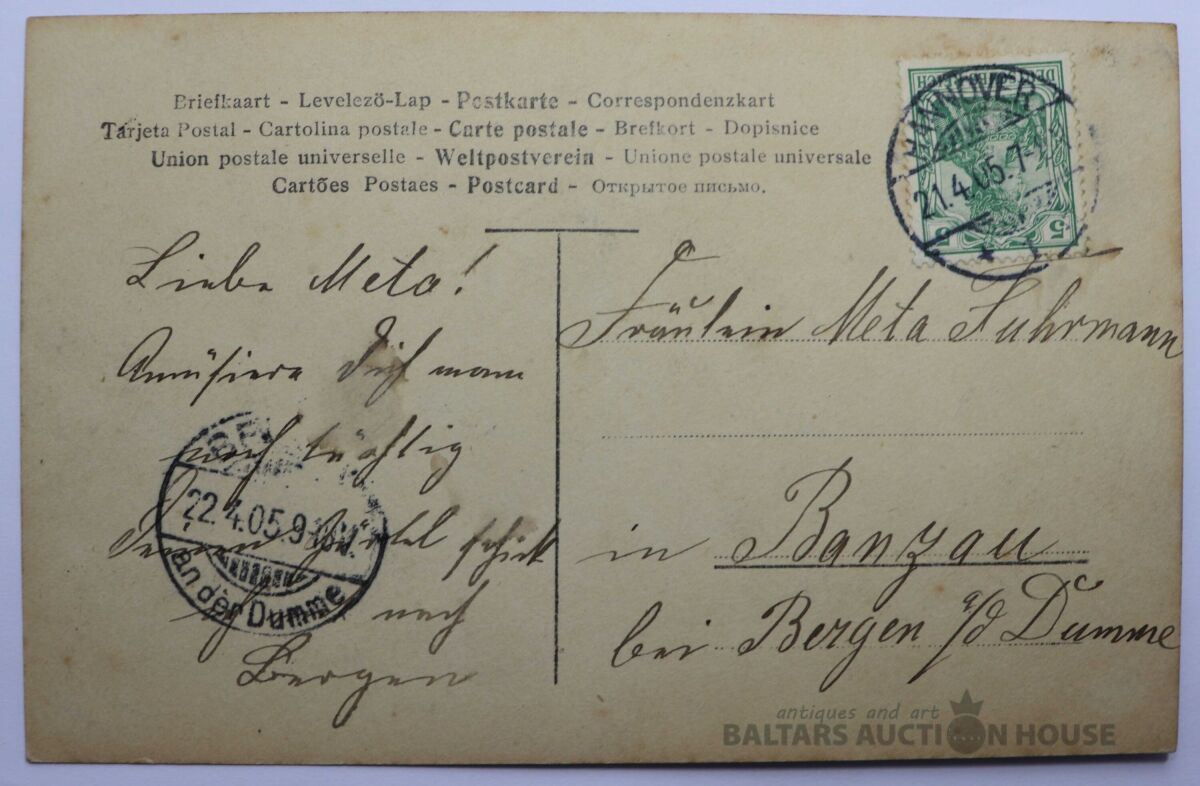 Briefkaart - Levelező-Lap - Postkarte - Correspondenzkart
Tarjeta Postal - Cartolina postale - Carte postale - Brefkort - Dopisnice
Union postale universelle - Weltpostverein - Unione postale universale
Cartões Postaes - Postcard - Открытое письмо.
DEUTSCHES REICH
5 5
HANNOVER
21.4.05. 7-
* 1
Liebe Meta!
Amüsiere Dich man
noch tüchtig
Gürtel schick
ich nach
Bergen
22.4.05.9-10V.
an der Dumme
Fräulein Meta Fuhrmann
in Banzau
bei Bergen a/d Dumme
antiques and art
BALTARS AUCTION HOUSE